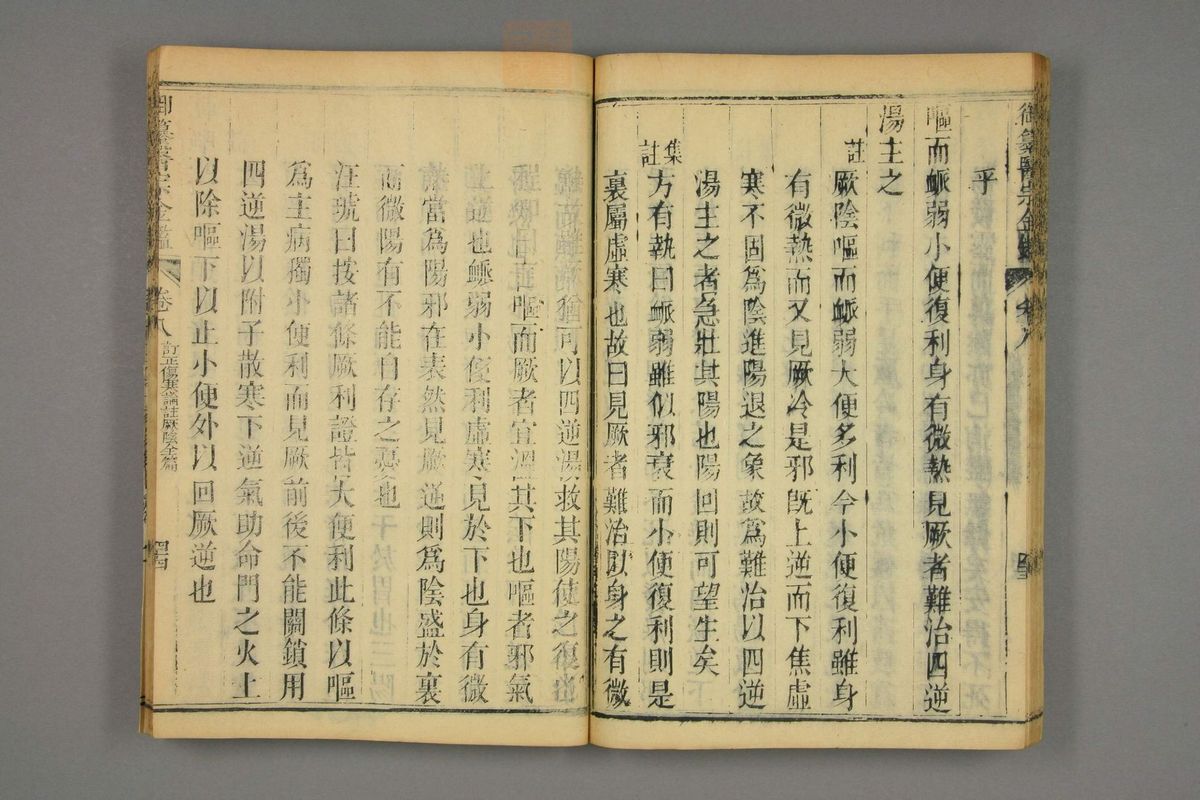 御纂醫宗金鑑 卷八
乎
嘔而脈弱小便復利身有微熱見厥者難治四逆
湯主之
註
厥陰嘔而脈弱大便多利今小便復利雖身
有微熱而又見厥冷是邪旣上逆而下焦虛
寒不固爲陰進陽退之象故爲難治以四逆
湯主之者急壯其陽也陽回則可望生矣
集註
方有執曰脈弱雖似邪衰而小便復利則是
裏屬虛寒也故曰見厥者難治以身之有微
熱而難猶可以四逆湯救其陽使之復也
嘔而厥者宜溫其下也嘔者邪氣
逆也脈弱小便利虛寒見於下也身有微
熱當爲陽邪在表然見厥逆則爲陰盛於裏
而微陽有不能自存之憂也
汪琥曰按諸條厥利證皆大便利此條以嘔
爲主病獨小便利而見厥前後不能關鎖用
四逆湯以附子散寒下逆氣助命門之火上
以除嘔下以止小便外以回厥逆也
御纂醫宗金鑑 卷八 訂正傷寒論註厥陰全篇